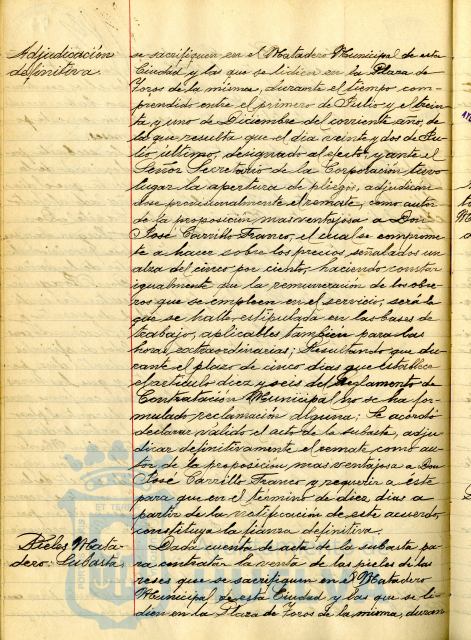 Adjudicación
definitiva.
se sacrifiquen en el Matadero Municipal de esta
Ciudad y las que se lidien en la Plaza de
Toros de la misma, durante el tiempo com-
prendido entre el primero de Julio y el trein
ta y uno de Diciembre del corriente año, de
la que resulta que el día veinte y dos de Ju-
lio último, designado al efecto, y ante el
Señor Secretario de la Corporación tuvo
lugar la apertura de pliegos, adjudicán-
dose provisionalmente el remate, como autor
de la proposición mas ventajosa a Don
José Carrillo Franco, el cual se comprome
te a hacer sobre los precios señalados un
alza del cinco por ciento, haciendo constar
igualmente que la remuneración de los obre-
ros que se empleen en el servicio, será la
que se halla estipulada en las bases de
trabajo, aplicables tambien para las
horas extraordinarias; Resultando que du-
rante el plazo de cinco dias que establece
el artículo diez y seis del Reglamento de
Contratación Municipal no se ha for-
mulado reclamación alguna; Se acordó
declarar válido el acto de la subasta, adju-
dicar definitivamente el remate como au-
tor de la proposición mas ventajosa a Don
José Carrillo Franco y requerir a éste
para que en el término de diez dias a
partir de la notificación de este acuerdo,
constituya la fianza definitiva.
Pieles Mata-
dero: Subasta.
Dada cuenta de acta de la subasta pa-
ra contratar la venta de las pieles de las
reses que se sacrifiquen en el Matadero
Municipal de esta Ciudad y las que se li-
dien en la Plaza de Toros de la misma, duran